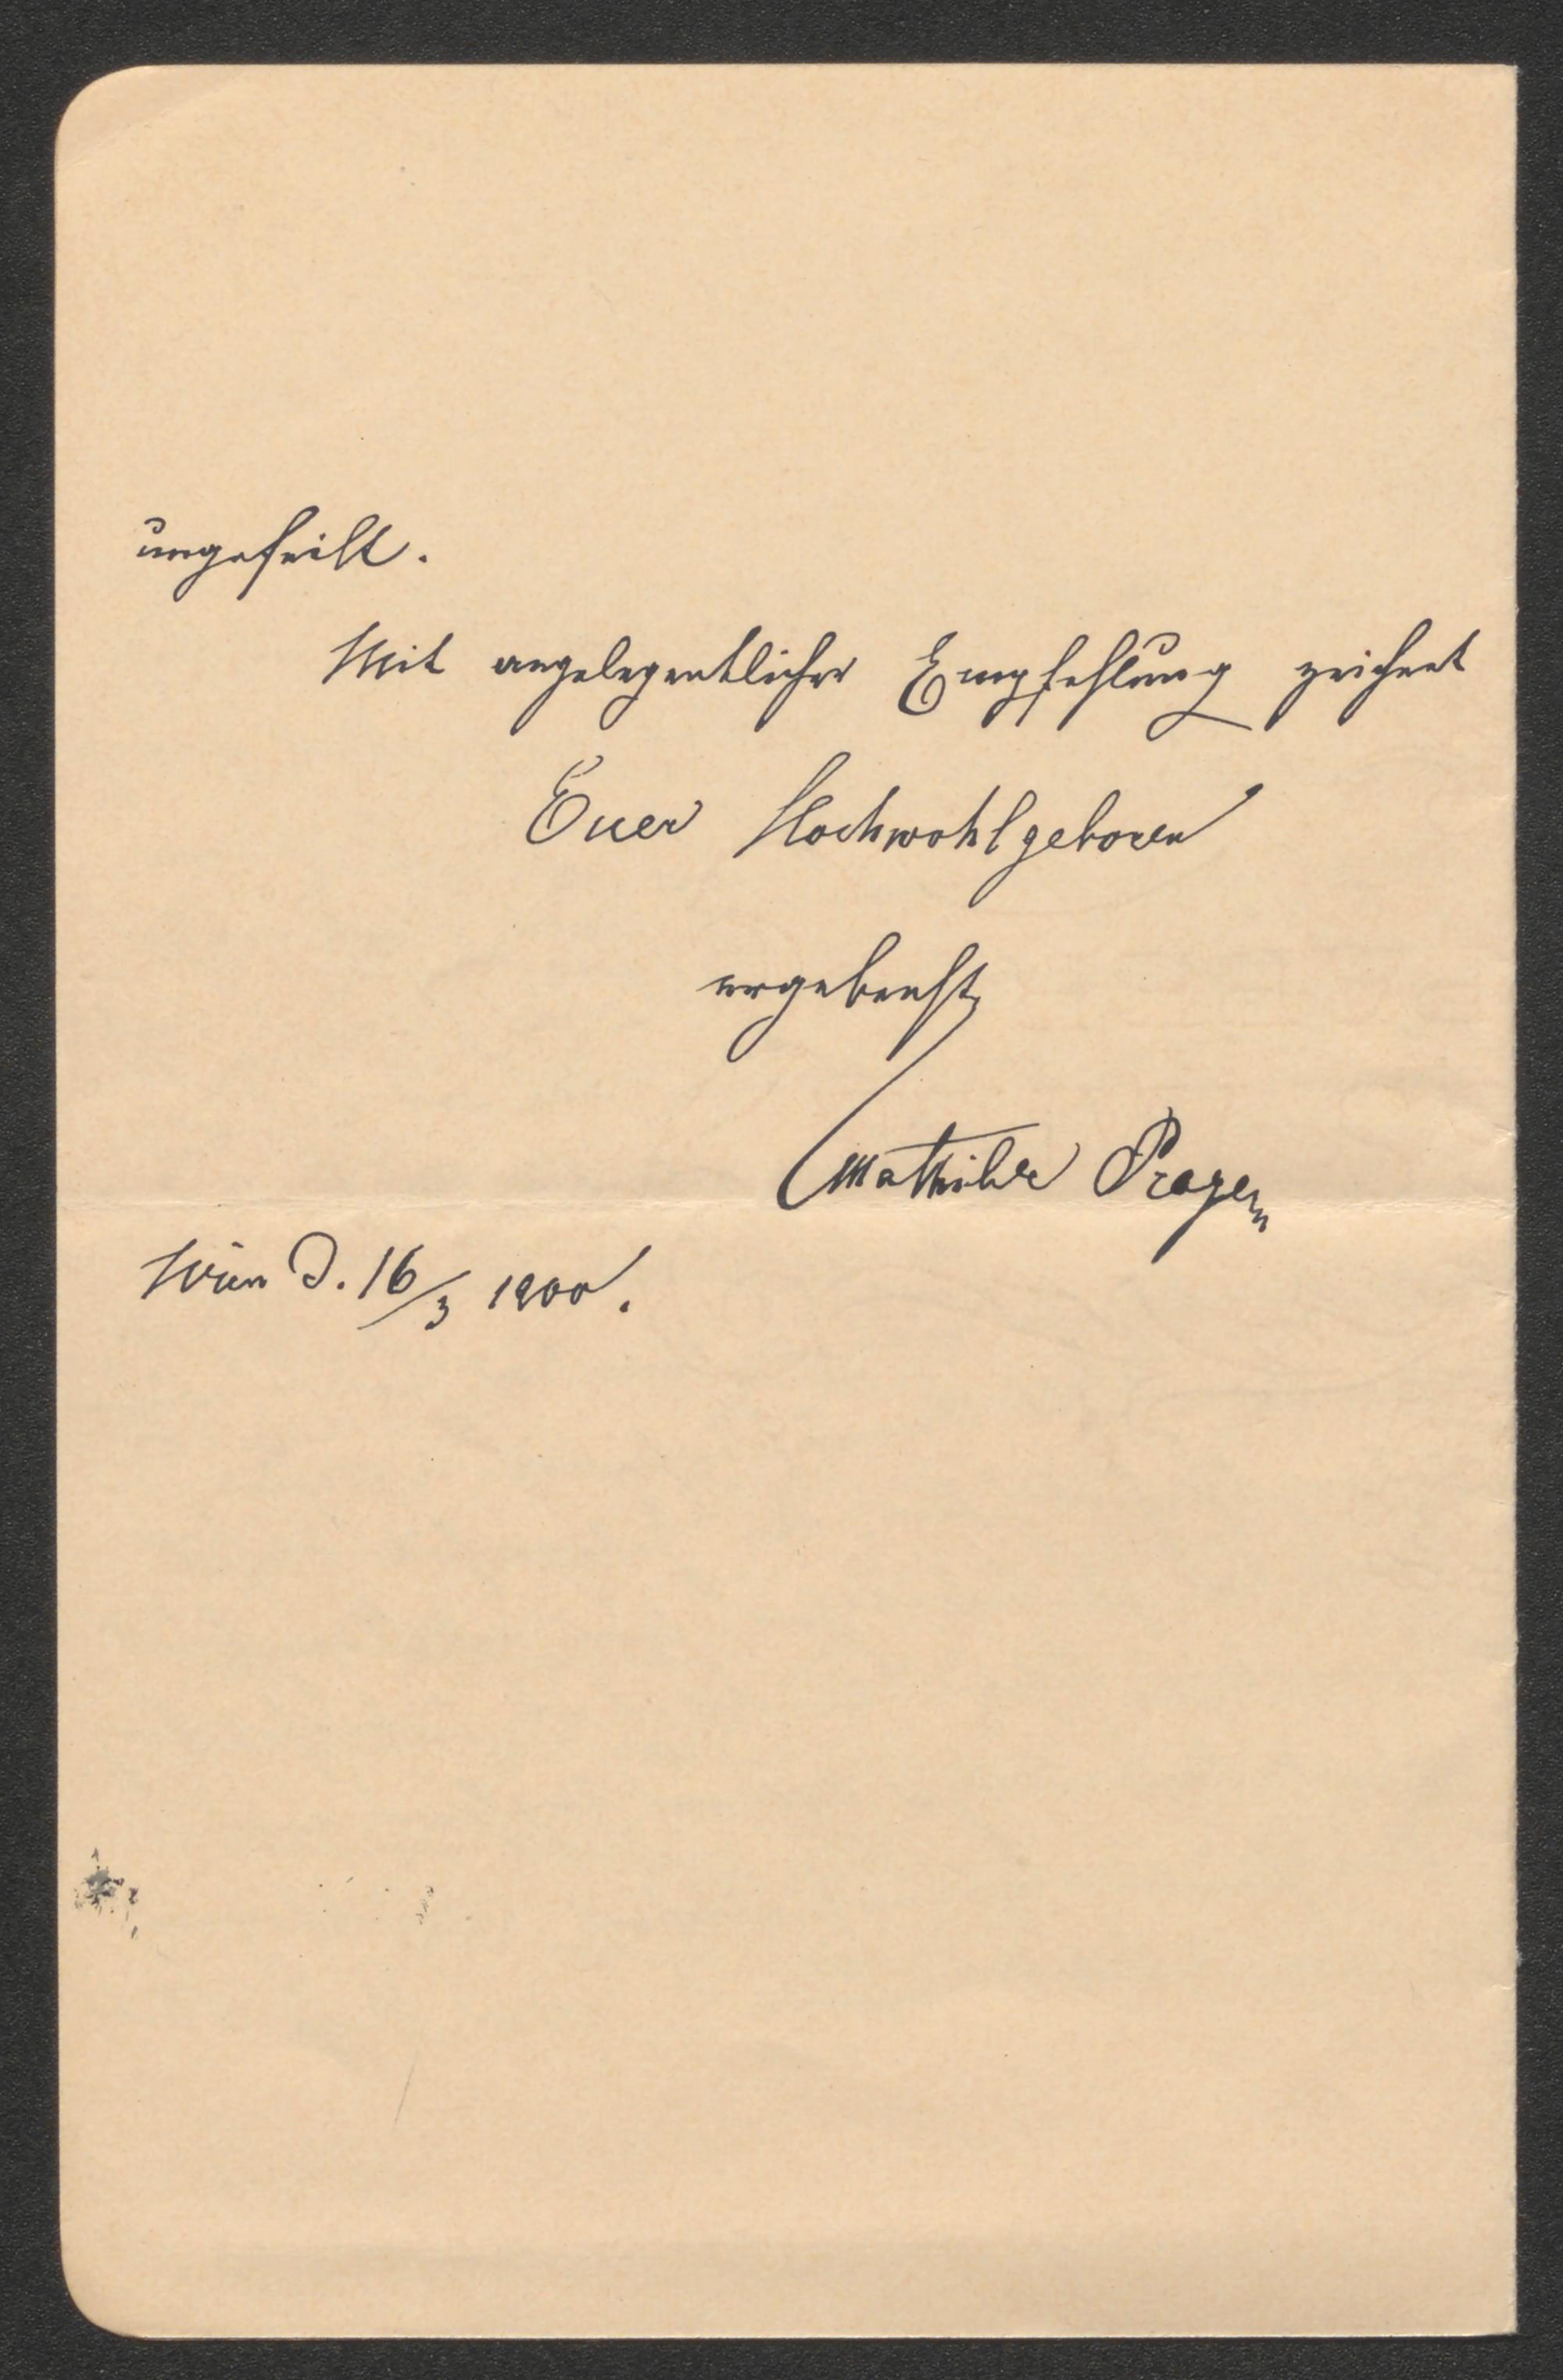 ungefeilt.
Mit angelegentlicher Empfehlung zeichnet
Euer Hochwohlgeboren
ergebenst
Mathilde Prager
Wien d. 16/3 1900.